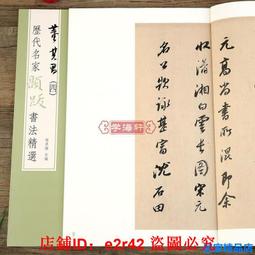 董其昌（四）
歷代名家題跋書法精選
元高尚書所混即余
收瀟湘白雲長圖宋元
名公跋詠甚富沈石田
学海轩
店鋪ID: e2r42 盜圖必究